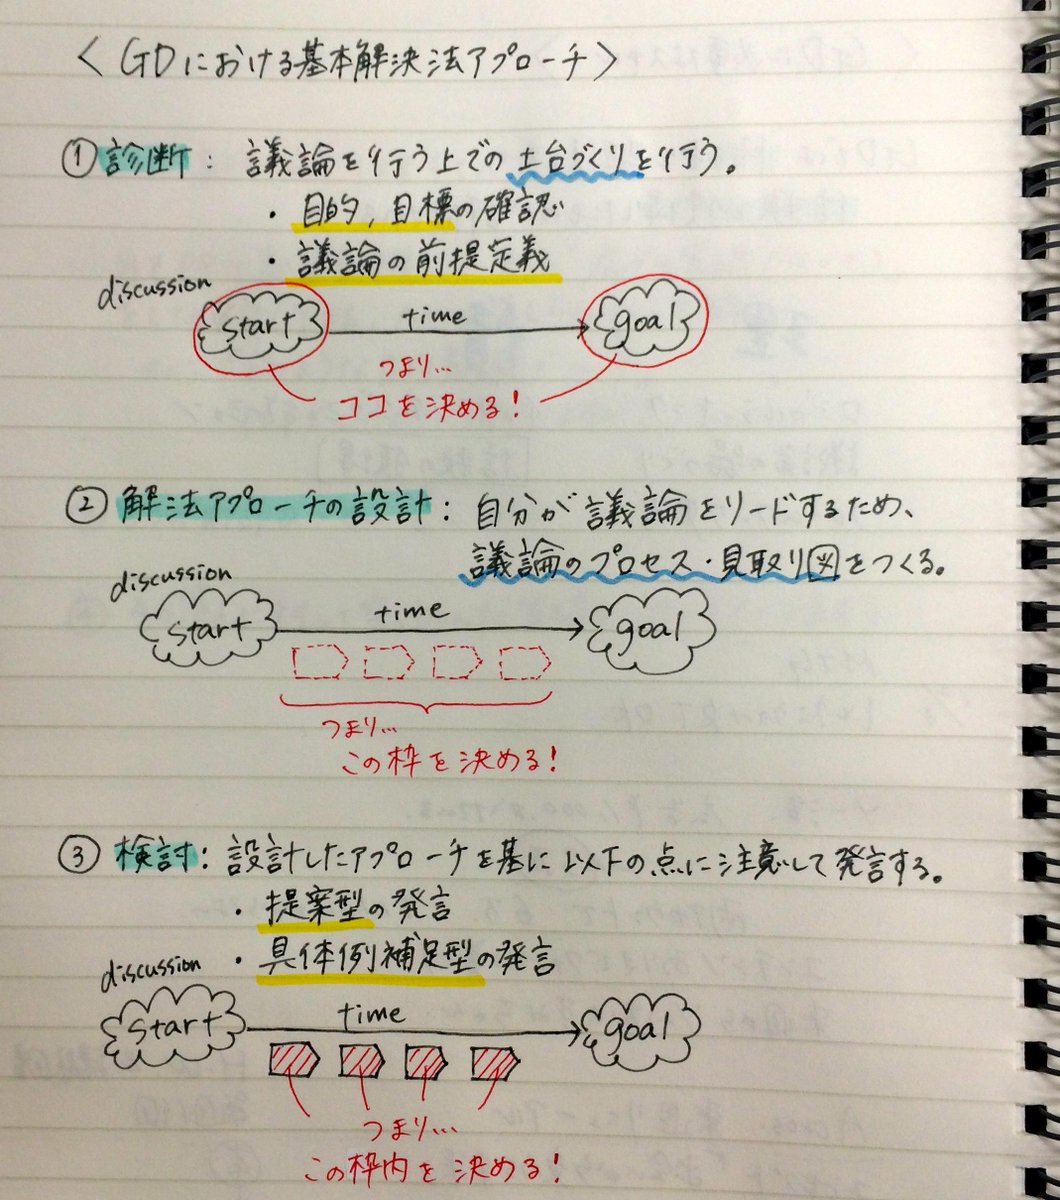 ＜GDにおける基本解決法アプローチ＞
①診断：議論を行う上での土台づくりを行う。
・目的,目標の確認
・議論の前提定義
discussion
start time goal
つまり…
ココを決める！
②解法アプローチの設計：自分が議論をリードするため、
議論のプロセス・見取り図をつくる。
discussion
start time goal
つまり…
この枠を決める！
③検討：設計したアプローチを基に以下の点に注意して発言する。
・提案型の発言
・具体例補足型の発言
discussion
start time goal
つまり…
この枠内を決める！